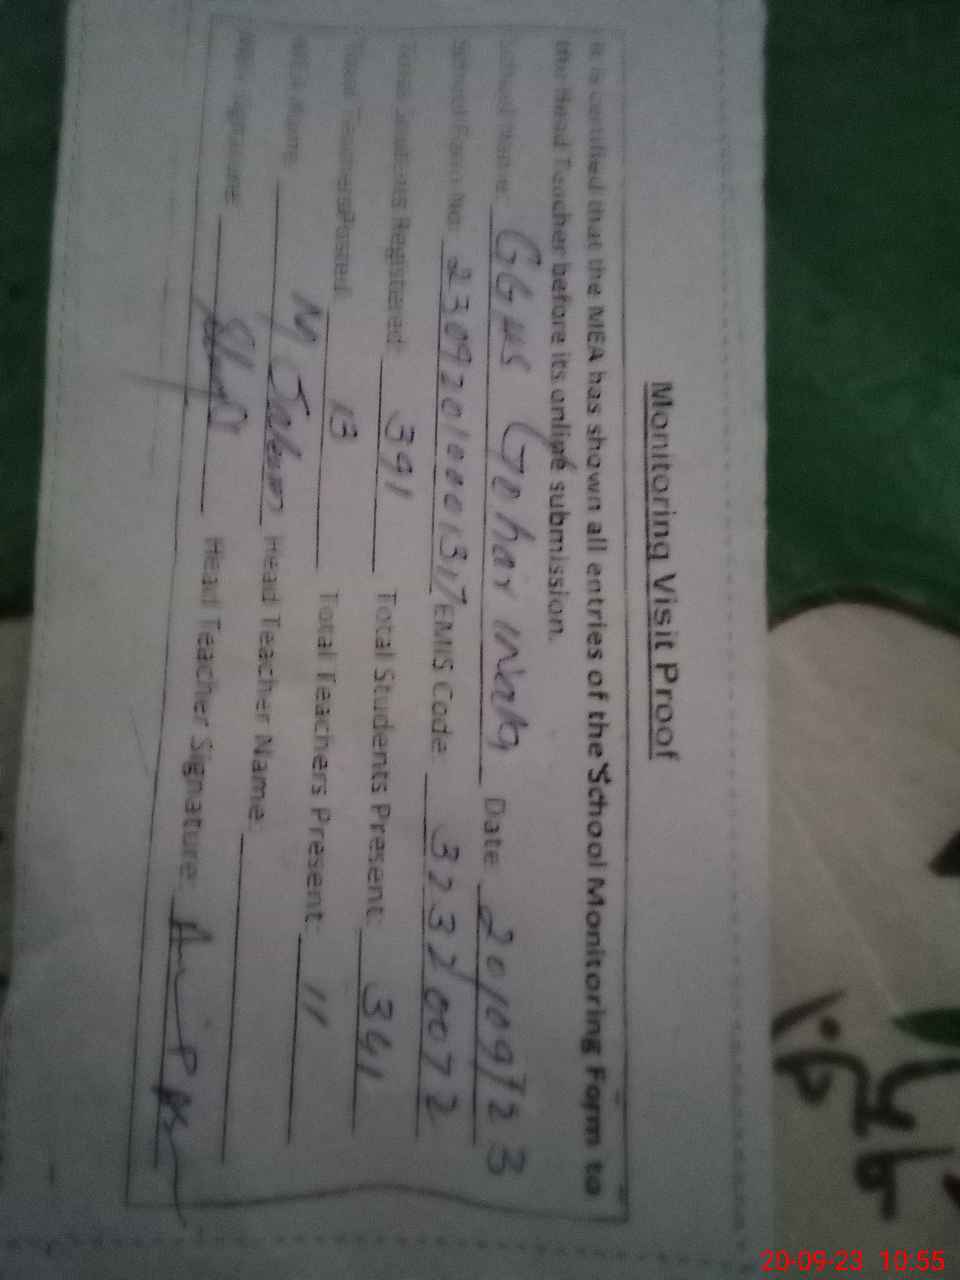 Monitoring Visit Proof
It is certified that the MEA has shown all entries of the School Monitoring Form to
the Head Teacher before its online submission.
School Name: GGHS Gohar Date: 20/09/23
School Form No: 23092010001317 EMIS Code: 37320072
Total Students Registered: 391 Total Students Present: 341
Total Teachers Posted: 13 Total Teachers Present: 11
MEA Name: M Saleem Head Teacher Name:
MEA Signature: Head Teacher Signature:
20-09-23 10:55